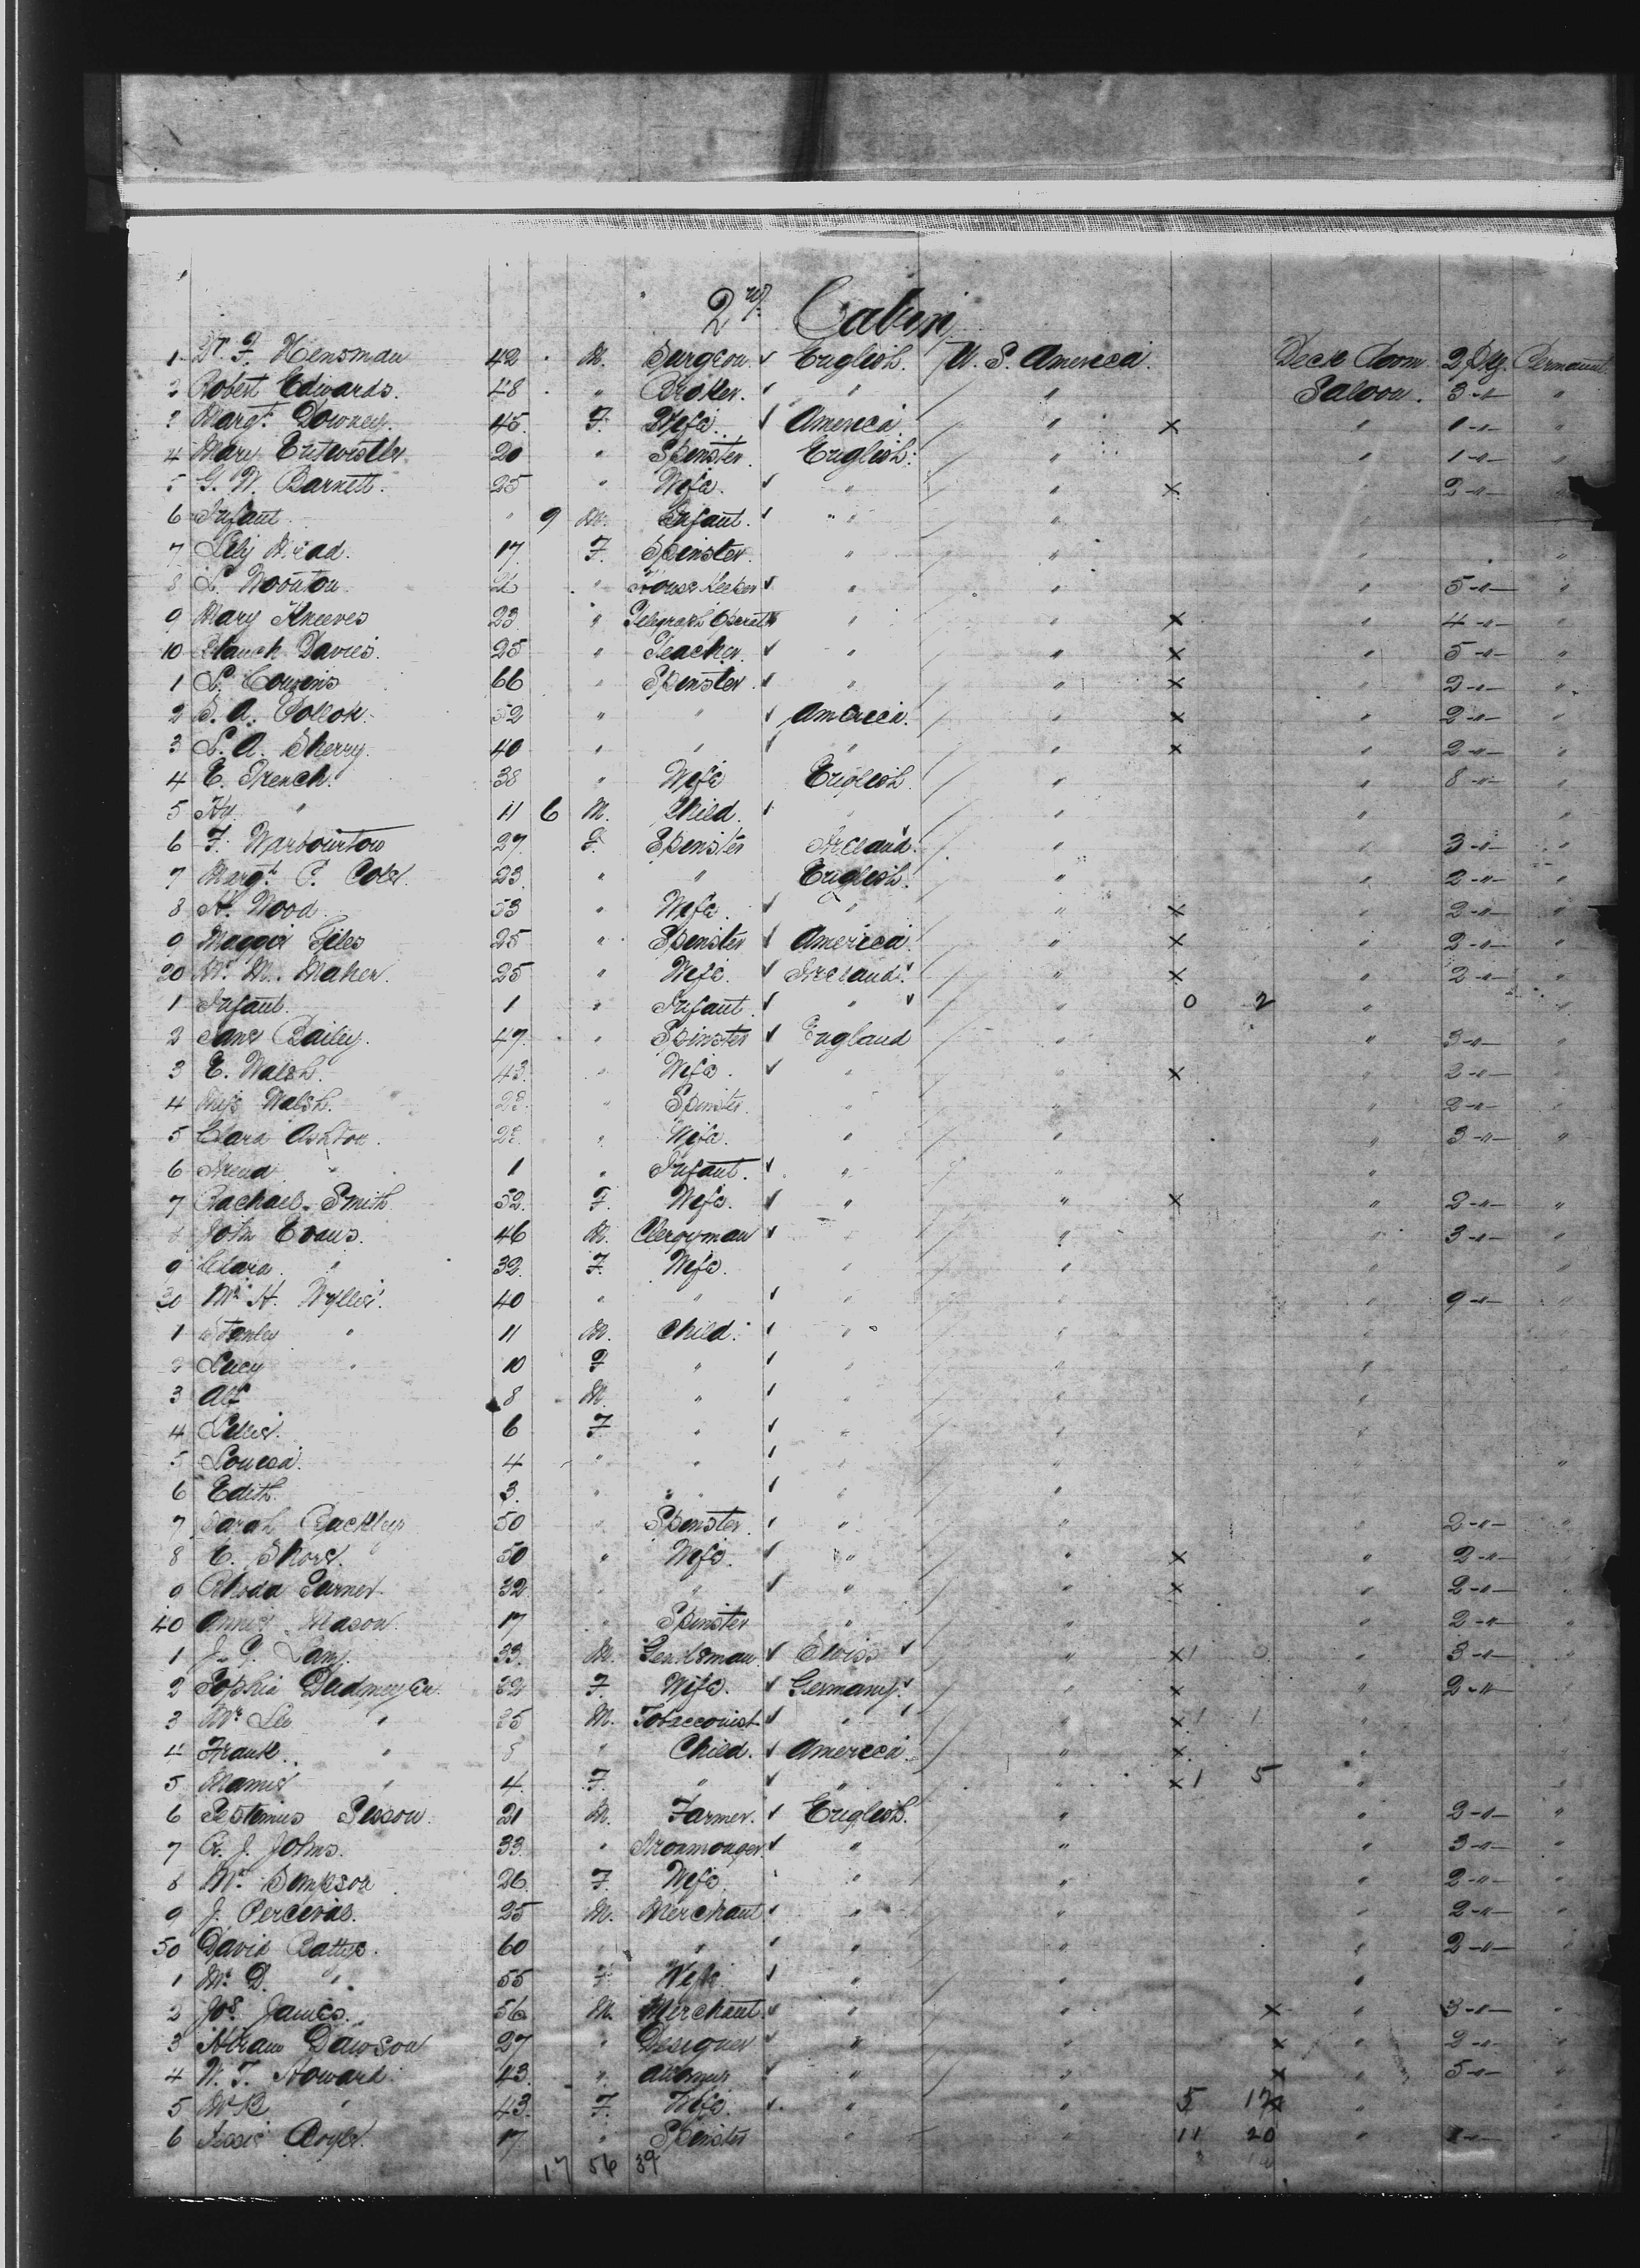 2nd Cabin
1 Dr. F. Hensman 42 M. Surgeon English. U. S. America. Deck Room 2 Pkg. Permanent
2 Robert Edwards. 48 " Broker. " " Saloon. 3 -"- "
3 Margt. Downer. 45 F. Wife America. " X " 1 -"- "
4 Mary 20 " Spenster. English. " " 1 -"- "
5 G. W. Barnett. 25 " Wife. " " X 2 -"- "
6 Infant " 9 M. Infant. " "
7 Lily Mead. 17 F. Spinster. " " " "
8 L. 2 " House Keeper " " " 5 -"- "
9 Mary 23 " Telegraph Operator " " X " 4 -"- "
10 Blanch Davies. 25 " Teacher. " " X " 5 -"- "
1 L. Cousins 66 " Spenster. " " X 2 -"- "
2 S. A. Pollok. 52 " " America. " X " 2 -"- "
3 L. A. Sherry. 40 " " " " X " 2 -"- "
4 E. French. 38 " Wife English " " 8 -"- "
5 Hy. " 11 6 M. Child. " " " "
6 F. Warbourton 27 F. Spenster Ireland. " " 3 -"- "
7 Margt. C. Cole. 23 " " English. " " 2 -"- "
8 H. Wood 53 " Wife. " " X " 2 -"- "
9 Maggie Giles 25 " Spenster America " X " 2 -"- "
20 Mrs. M. Maher. 25 " Wife. Ireland. " X " 2 -"- "
1 Infant. 1 " Infant. " " 0 2 " "
2 Jane Bailey. 47. " Spinster England " " 3 -"- "
3 E. Walsh. 43. " Wife. " " X " 2 -"- "
4 Miss Walsh. " Spinster. " " " 2 -"- "
5 Clara Ashton. " Wife. " " " 3 -"- "
6 " 1 " Infant. " " "
7 Rachael Smith 52. F. Wife. " " X " 2 -"- "
8 John Evans. 46 M. Clergyman " " " 3 -"- "
9 Clara. " 32. F. Wife. " " " "
30 Mrs. H. Wyllie. 40 " " " " " 9 -"- "
1 Stanley " 11 M. Child. " " "
2 Lucy " 10 F " " " "
3 Alf 8 M. " " " "
4 Lillie. 6 F " " " "
5 Louisa. 4 " " " " " "
6 Edith. 3. " " " "
7 Sarah 50 " Spenster. " " " 2 -"- "
8 E. Shore. 50 " Wife. " " X " 2 -"-
9 Rhoda Turner 32 " " " " X " 2 -"- "
40 Annie Mason. 17 " Spinster " " " 2 -"- "
1 J. G. 33. M. Gentleman. Swiss " X 1 0 " 3 -"- "
2 Sophia 32 F. Wife. Germany. " X " 2 -"-
3 Mr. Leo " 35 M. Tobacconist " " X 1 1 "
4 Frank. " 8 " Child. America. " X "
5 Mamie " 4. F. " " " X 1 5 " "
6 Sisson. 21 M. Farmer. English. " " 2 -"- "
7 R. J. Johns. 33. " Ironmonger. " " " 3 -"- "
8 Mrs. Simpson 26. F. Wife. " " " 2 -"- "
9 J. Percival. 25 M. Merchant. " " " 2 -"- "
50 David Battye. 60 " " " " " 2 -"- "
1 Mrs. D. " 55 F. Wife. " " "
2 Jos. James. 56. M. Merchant. " " X " 3 -"- "
3 Hiram Dawson 27 " Designer " " X " 2 -"- "
4 W. T. Howard. 43. " " " X " 5 -"- "
5 Mrs " 43. F. Wife. " " 5 17 X " "
6 Jessie 17 " Spenster " " 11 20 " 1 -"- "
17 56 39